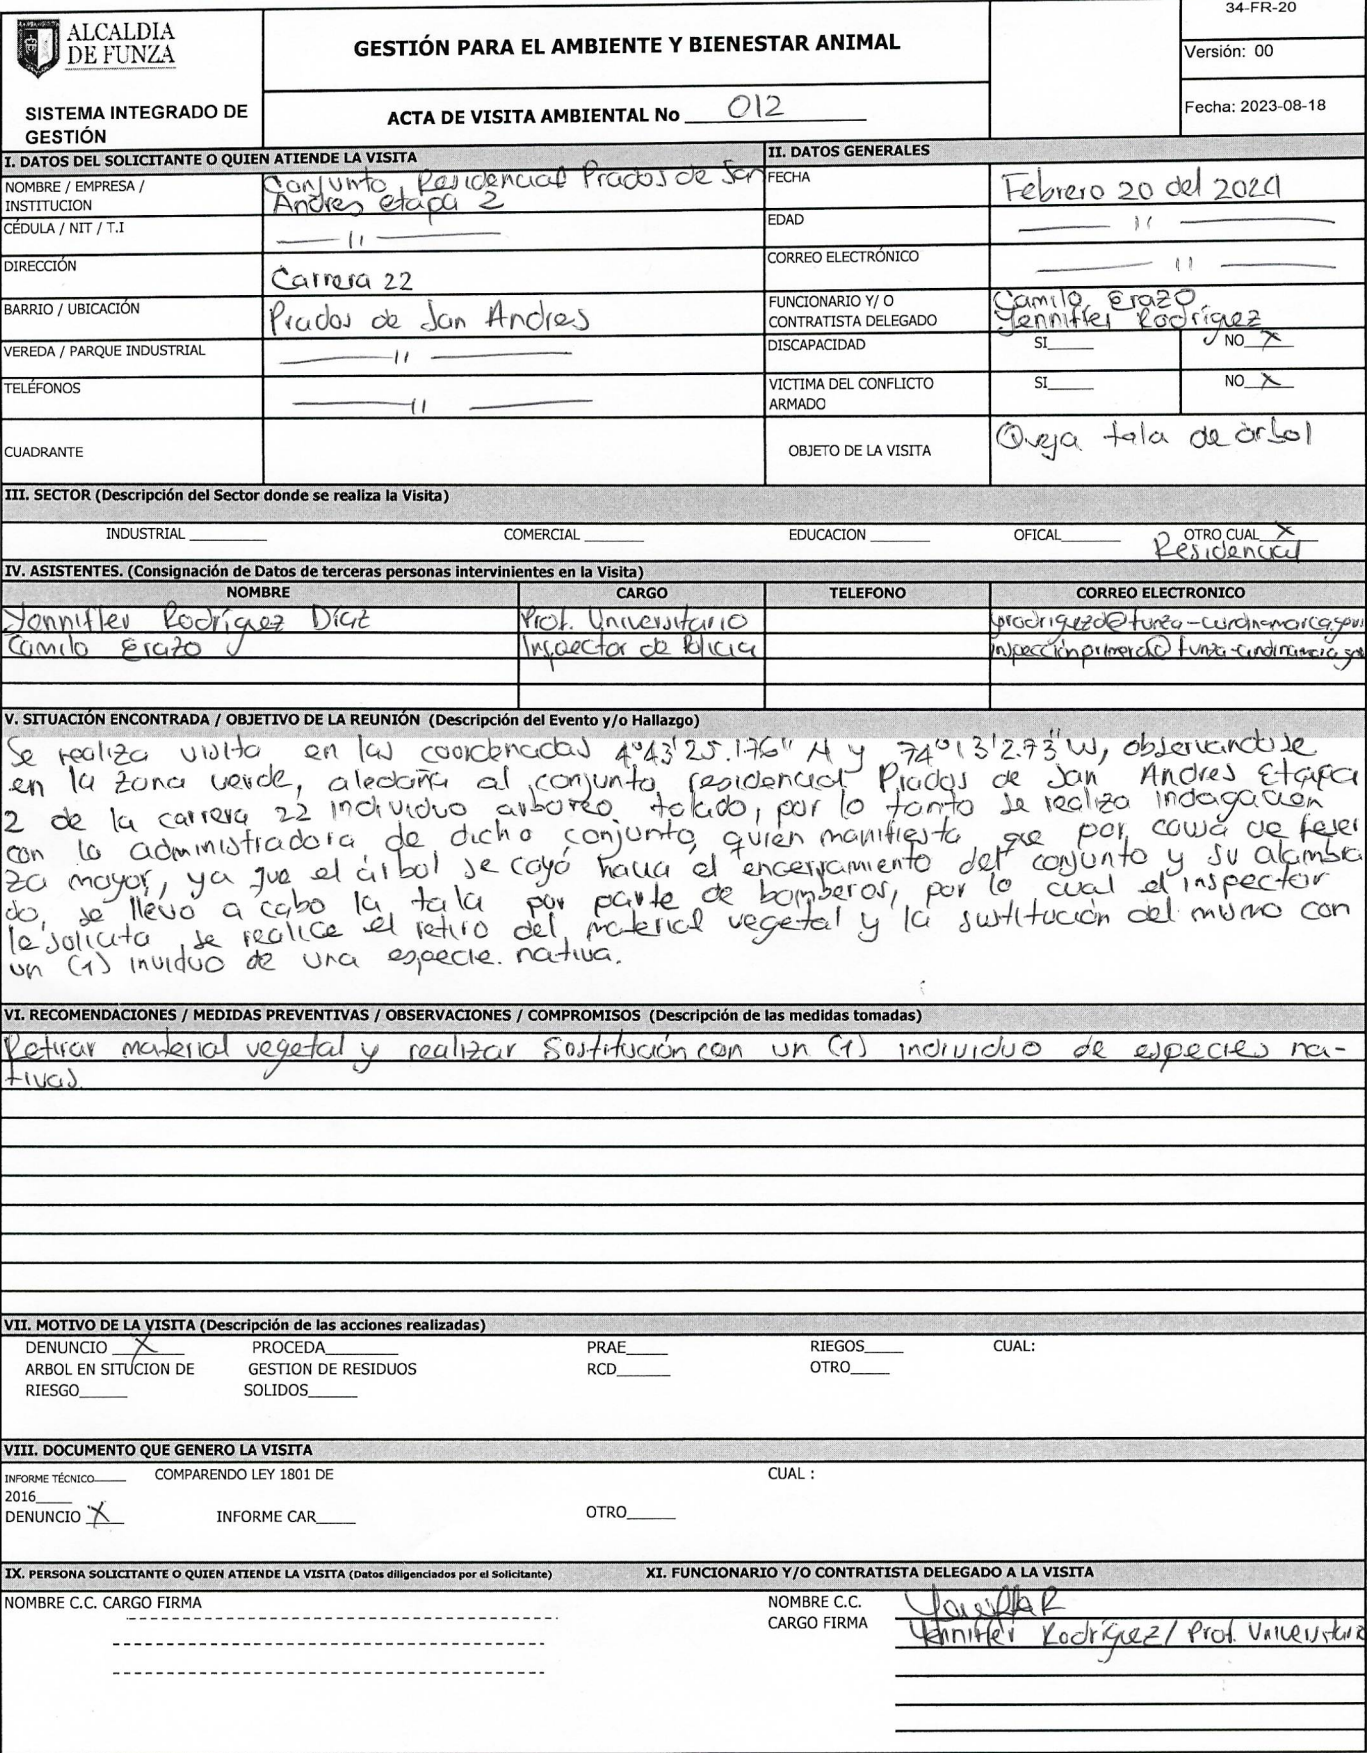 34-FR-20
ALCALDIA
DE FUNZA
GESTIÓN PARA EL AMBIENTE Y BIENESTAR ANIMAL
Versión: 00
SISTEMA INTEGRADO DE
GESTIÓN
ACTA DE VISITA AMBIENTAL No 012
Fecha: 2023-08-18
I. DATOS DEL SOLICITANTE O QUIEN ATIENDE LA VISITA
II. DATOS GENERALES
NOMBRE / EMPRESA /
INSTITUCION
Conjunto Residencial Prados de San
Andres etapa 2
FECHA
Febrero 20 del 2024
CÉDULA / NIT / T.I
—— 11 ——
EDAD
—— 11 ——
DIRECCIÓN
Carrera 22
CORREO ELECTRÓNICO
—— 11 ——
BARRIO / UBICACIÓN
Prados de San Andres
FUNCIONARIO Y/ O
CONTRATISTA DELEGADO
Camilo Erazo,
Yenniffer Rodríguez
VEREDA / PARQUE INDUSTRIAL
—— 11 ——
DISCAPACIDAD
SI____ NO X
TELÉFONOS
—— 11 ——
VICTIMA DEL CONFLICTO
ARMADO
SI____ NO X
CUADRANTE
OBJETO DE LA VISITA
Queja tala de árbol
III. SECTOR (Descripción del Sector donde se realiza la Visita)
INDUSTRIAL ____ COMERCIAL ____ EDUCACION ____ OFICAL____ OTRO CUAL X
Residencial
IV. ASISTENTES. (Consignación de Datos de terceras personas intervinientes en la Visita)
NOMBRE CARGO TELEFONO CORREO ELECTRONICO
Yenniffer Rodríguez Díaz Prof. Universitario
Camilo Erazo Inspector de Policia
V. SITUACIÓN ENCONTRADA / OBJETIVO DE LA REUNIÓN (Descripción del Evento y/o Hallazgo)
Se realiza visita en las coordenadas 4°43'25.176" N y 74°13'2.73" W, observandose
en la zona verde, aledaña al conjunto residencial Prados de San Andres Etapa
2 de la carrera 22 individuo arboreo talado, por lo tanto se realiza indagación
con la administradora de dicho conjunto, quien manifiesta que por causa de fuer
za mayor, ya que el árbol se cayó hacia el encerramiento del conjunto y su alambra
do, se llevo a cabo la tala por parte de bomberos, por lo cual el inspector
le solicita se realice el retiro del material vegetal y la sustitución del mismo con
un (1) inviduo de una especie nativa.
VI. RECOMENDACIONES / MEDIDAS PREVENTIVAS / OBSERVACIONES / COMPROMISOS (Descripción de las medidas tomadas)
Retirar material vegetal y realizar sostitución con un (1) individuo de especies na-
tivas.
VII. MOTIVO DE LA VISITA (Descripción de las acciones realizadas)
DENUNCIO X PROCEDA____ PRAE____ RIEGOS____ CUAL:
ARBOL EN SITUCION DE GESTION DE RESIDUOS RCD____ OTRO____
RIESGO____ SOLIDOS____
VIII. DOCUMENTO QUE GENERO LA VISITA
INFORME TÉCNICO____ COMPARENDO LEY 1801 DE CUAL :
2016____
DENUNCIO X INFORME CAR____ OTRO____
IX. PERSONA SOLICITANTE O QUIEN ATIENDE LA VISITA (Datos diligenciados por el Solicitante)
XI. FUNCIONARIO Y/O CONTRATISTA DELEGADO A LA VISITA
NOMBRE C.C. CARGO FIRMA
NOMBRE C.C.
CARGO FIRMA
Yenniffer Rodríguez / Prof. Universitario